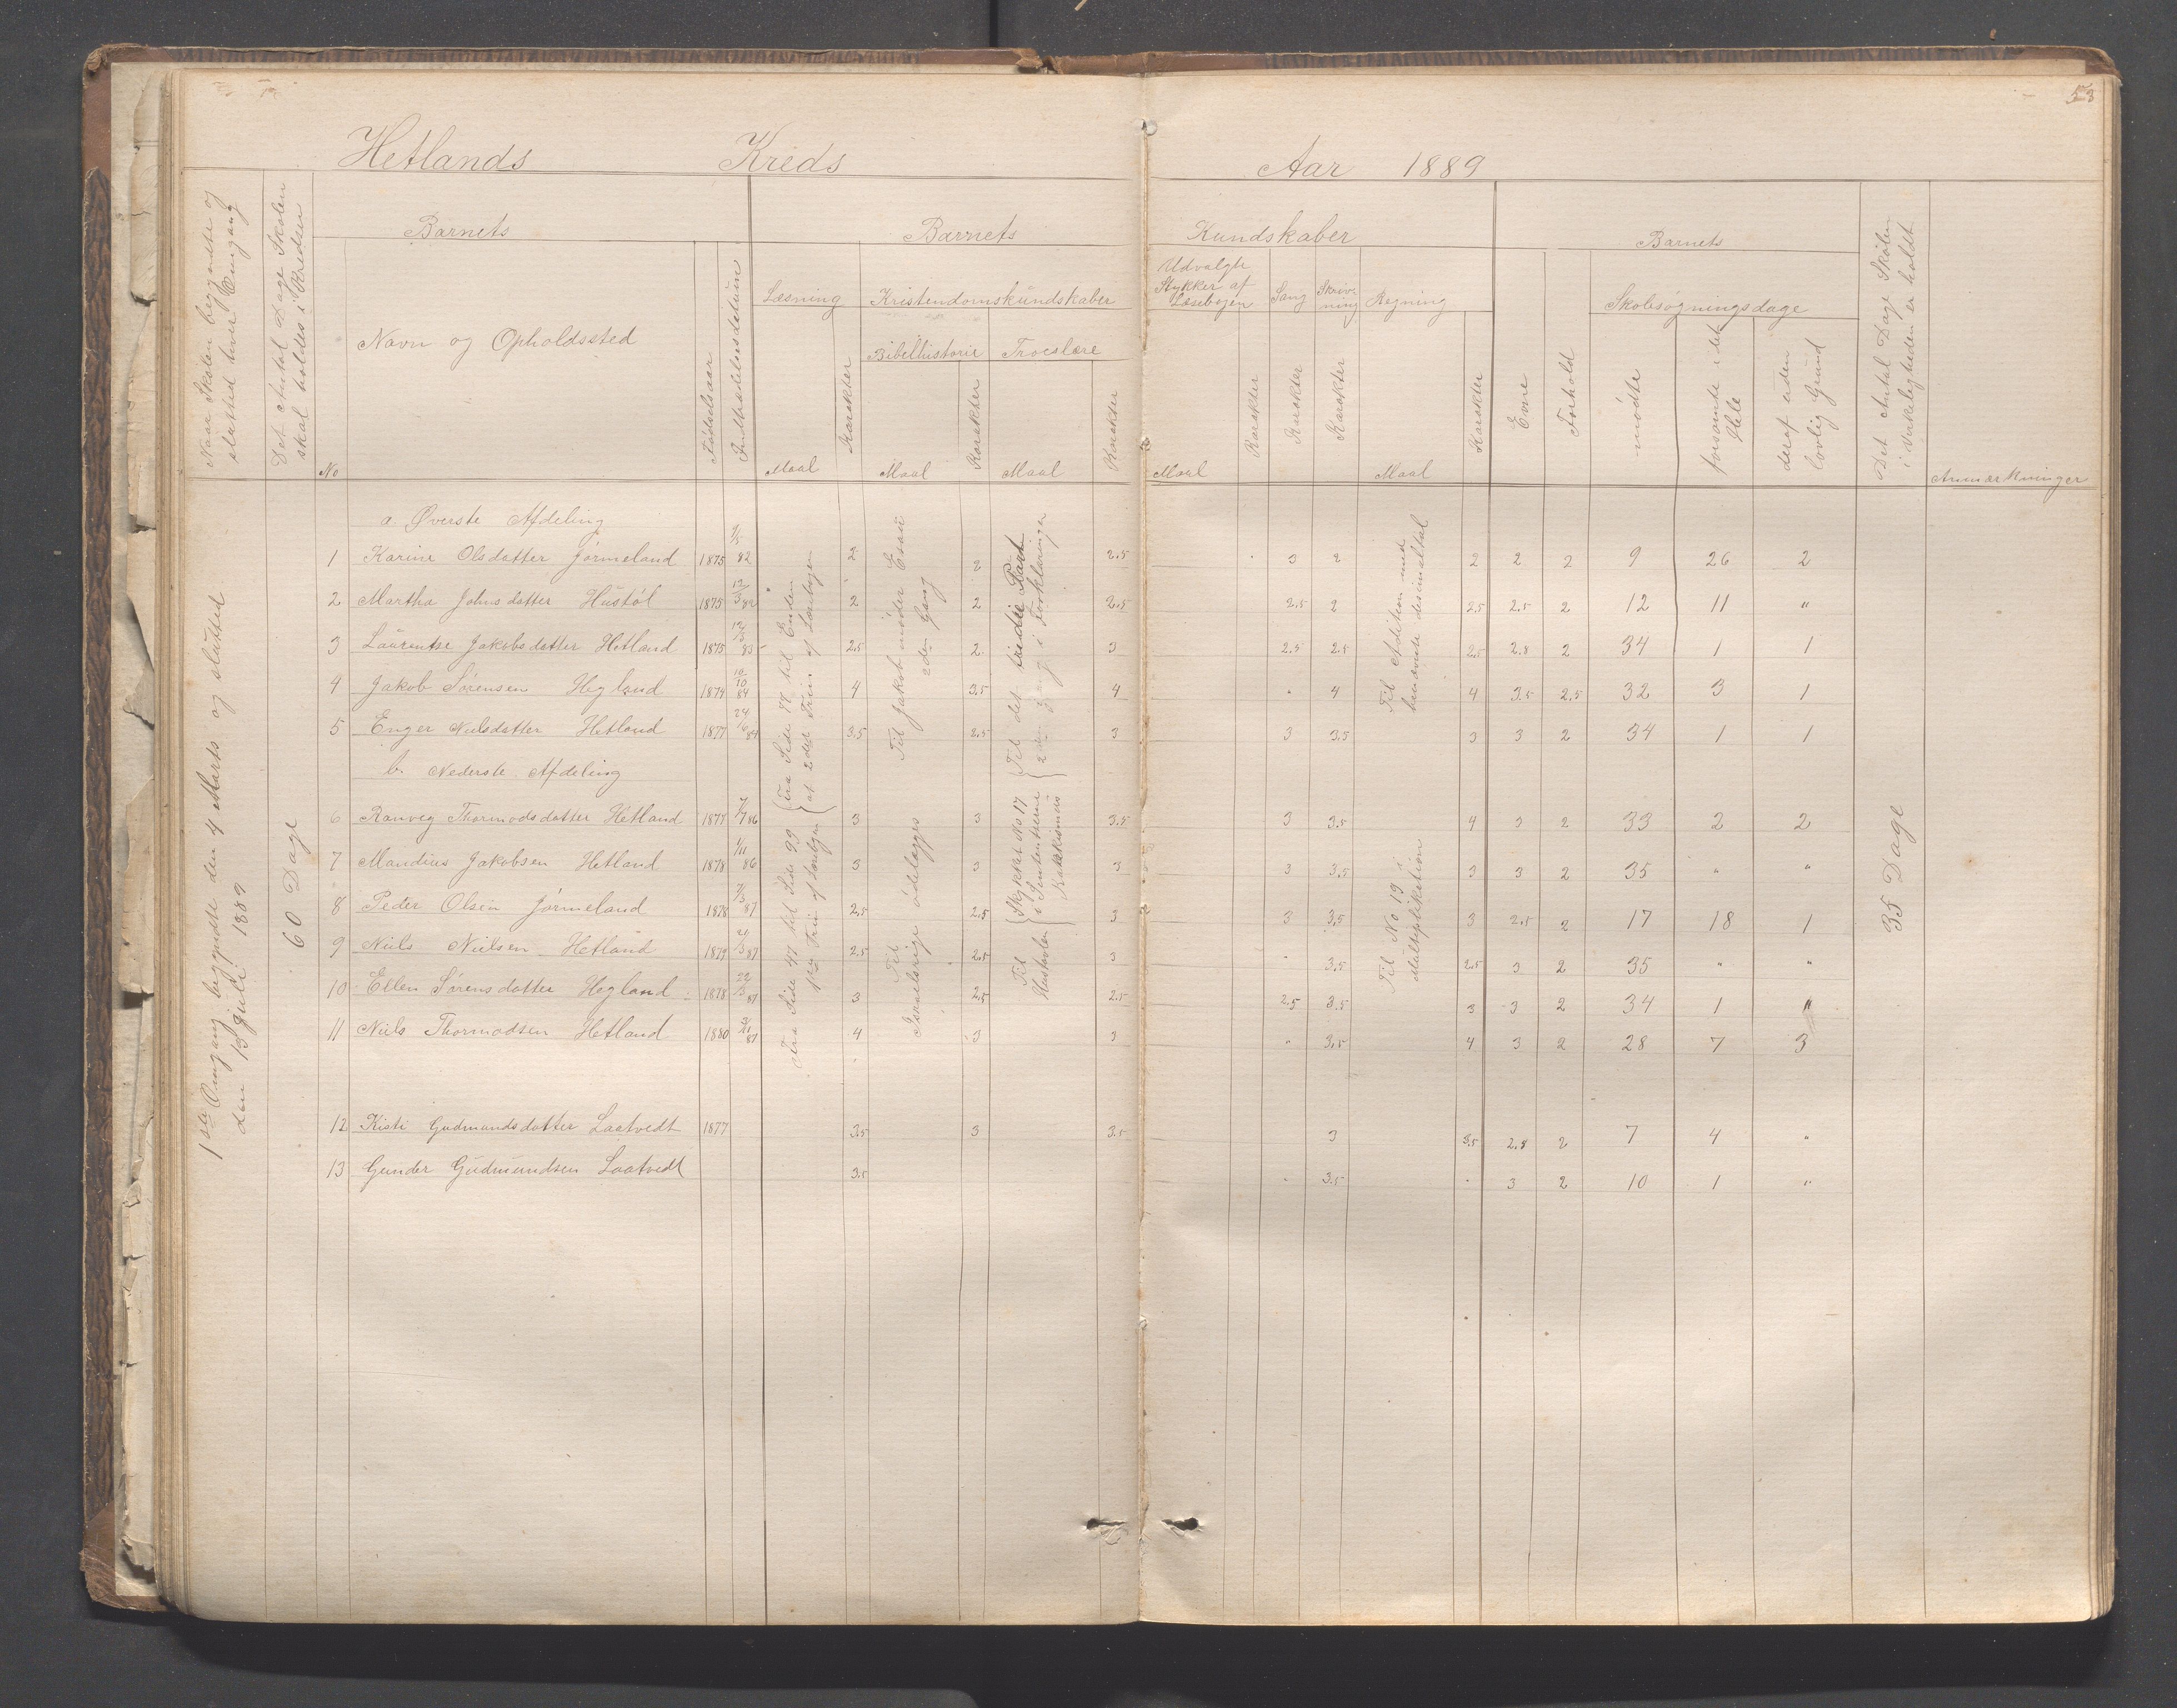 53
Hetlands Kreds Aar 1889
Naar Skolen begyndte og slutted hver Omgang
Det Antal Dage Skolen skal holdes i Kredsen
Barnets
No
Navn og Opholdssted
Fødselsaar
Indtrædelsesdatum
Barnets Kundskaber
Læsning
Maal
Karakter
Kristendomskundskaber
Bibelhistorie
Maal
Karakter
Troeslære
Maal
Karakter
Udvalgte Stykker af Læsebogen
Maal
Karakter
Sang
Karakter
Skrivning
Karakter
Regning
Maal
Karakter
Barnets
Evne
Forhold
Skolesøgningsdage
mødte
forsømte i det Hele
deraf uden lovlig Grund
Det Antal Dage Skolen i Virkeligheden er holdt
Anmærkninger
1ste Omgang begyndte den 4 Marts og slutted den 13 Juli 1889
60 Dage
a. Øverste Afdeling
1 Karine Olsdatter Jørmeland 1875 82 2 2 2.5 3 2 2 2 2 9 26 2
2 Martha Johnsdatter Hustøl 1875 12/3 82 2 2 2.5 2.5 2 2.5 2.5 2 12 11 "
3 Laurentse Jakobsdatter Hetland 1875 83 2.5 2 3 2.5 2.5 2.5 2.8 2 34 1 1
4 Jakob Sørensen Hegland 1874 10/10 84 4 3.5 4 " 4 4 3.5 2.5 32 3 1
5 Enger Nielsdatter Hetland 1877 24 84 3.5 2.5 3 3 3.5 3 3 2 34 1 1
b. Nederste Afdeling
6 Ranveg Thormodsdatter Hetland 1877 86 3 3 3.5 3 3.5 4 3 2 33 2 2
7 Mandius Jakobsen Hetland 1878 1/11 86 3 3 3 3 3.5 3 3 2 35 " "
8 Peder Olsen Jørmeland 1878 87 2.5 2.5 3 3 3.5 3 2.5 2 17 18 1
9 Niels Nielsen Hetland 1879 87 2.5 2.5 3 " 3.5 2.5 3 2 35 " "
10 Ellen Sørensdatter Hegland 1878 22/3 87 3 2.5 2.5 2.5 3.5 3 3 2 34 1 "
11 Niels Thormodsen Hetland 1880 87 4 3 3 " 3.5 4 3 2 28 7 3
12 Kisti Gudmundsdatter Laatvedt 1877 3.5 3 3.5 3 3.5 2.8 2 7 4 "
13 Gunder Gudmundsen Laatvedt 3.5 " 3.5 " 3 2 10 1 "
Fra Side 78 til Enden
af 2det Trin af Læsebogen
Fra Side 47 til Side 99
1ste Trin af Læsebogen
Til Jakob møder Esau
2den Gang
Til
Israelsrige ødelægges
Til det tredie Part
2den Gang i Forklaringer
Til Stykket No 17
Hustavlen i Sententserne
Katekismus
Til Adition med
benævnte desimaltal
Til No 19 i
Multiplikation
35 Dage